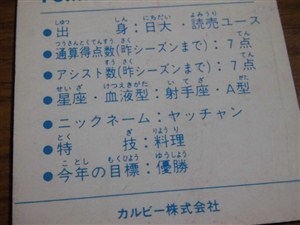 ●出　　身：日大・読売ユース
●通算得点数(昨シーズンまで)：7点
●アシスト数(昨シーズンまで)：7点
●星座・血液型：射手座・A型
●ニックネーム：ヤッチャン
●特　　技：料理
●今年の目標：優勝
カルビー株式会社